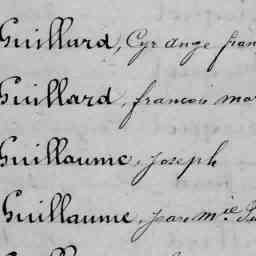 Guillard, Cyr ange fran
Guillard, francois ma
Guillaume, Joseph
Guillaume, Jean m.ie